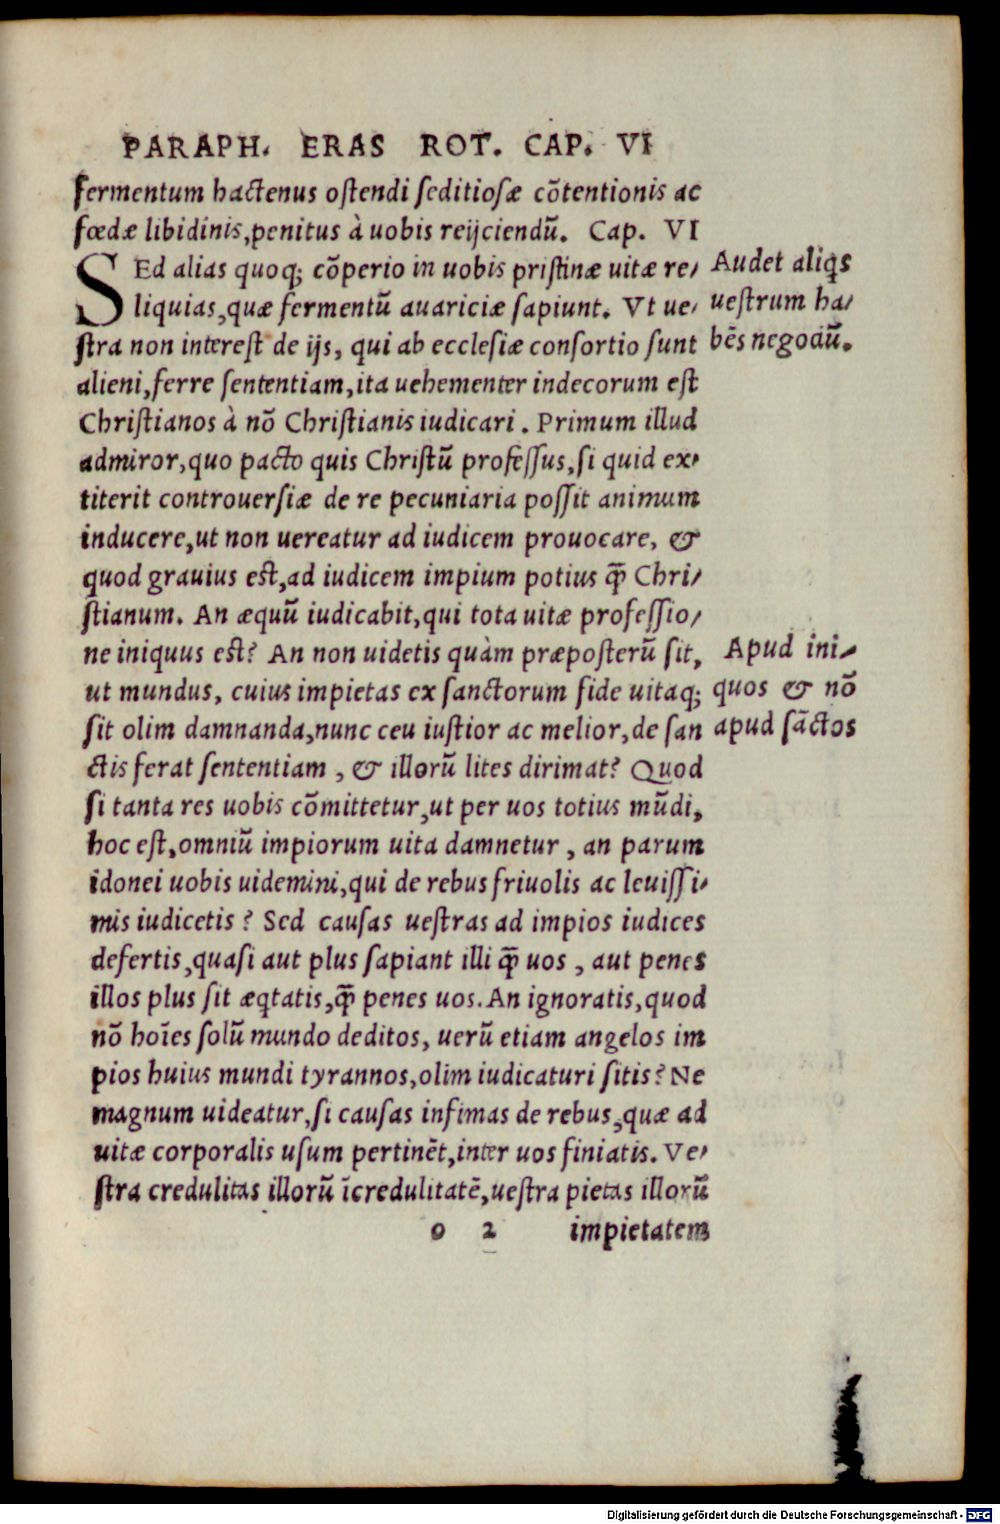 PARAPH. ERAS ROT. CAP. VI
fermentum hactenus ostendi seditiosæ cōtentionis ac
fœdæ libidinis,penitus à uobis reijciendū. Cap. VI
SEd alias quoq; cōperio in uobis pristinæ uitæ re/
liquias,quæ fermentū auariciæ sapiunt. Vt ue/
stra non interest de ijs, qui ab ecclesiæ consortio sunt
alieni,ferre sententiam,ita uehementer indecorum est
Christianos à nō Christianis iudicari. Primum illud
admiror,quo pacto quis Christū professus,si quid ex/
titerit controuersiæ de re pecuniaria possit animum
inducere,ut non uereatur ad iudicem prouocare, &
quod grauius est,ad iudicem impium potius q̄ Chri/
stianum. An æquū iudicabit,qui tota uitæ professio/
ne iniquus est? An non uidetis quàm præposterū sit,
ut mundus, cuius impietas ex sanctorum fide uitaq;
sit olim damnanda,nunc ceu iustior ac melior,de san
ctis ferat sententiam, & illorū lites dirimat? Quod
si tanta res uobis cōmittetur,ut per uos totius mūdi,
hoc est,omniū impiorum uita damnetur, an parum
idonei uobis uidemini,qui de rebus friuolis ac leuissi/
mis iudicetis? Sed causas uestras ad impios iudices
defertis,quasi aut plus sapiant illi q̄ uos, aut penes
illos plus sit æqtatis,q̄ penes uos. An ignoratis,quod
nō hoīes solū mundo deditos, uerū etiam angelos im
pios huius mundi tyrannos,olim iudicaturi sitis? Ne
magnum uideatur,si causas infimas de rebus,quæ ad
uitæ corporalis usum pertinēt,inter uos finiatis. Ve/
stra credulitas illorū īcredulitatē,uestra pietas illorū
o 2 impietatem
Audet aliqs
uestrum ha/
bēs negociū.
Apud ini/
quos & nō
apud sāctos
Digitalisierung gefördert durch die Deutsche Forschungsgemeinschaft - DFG